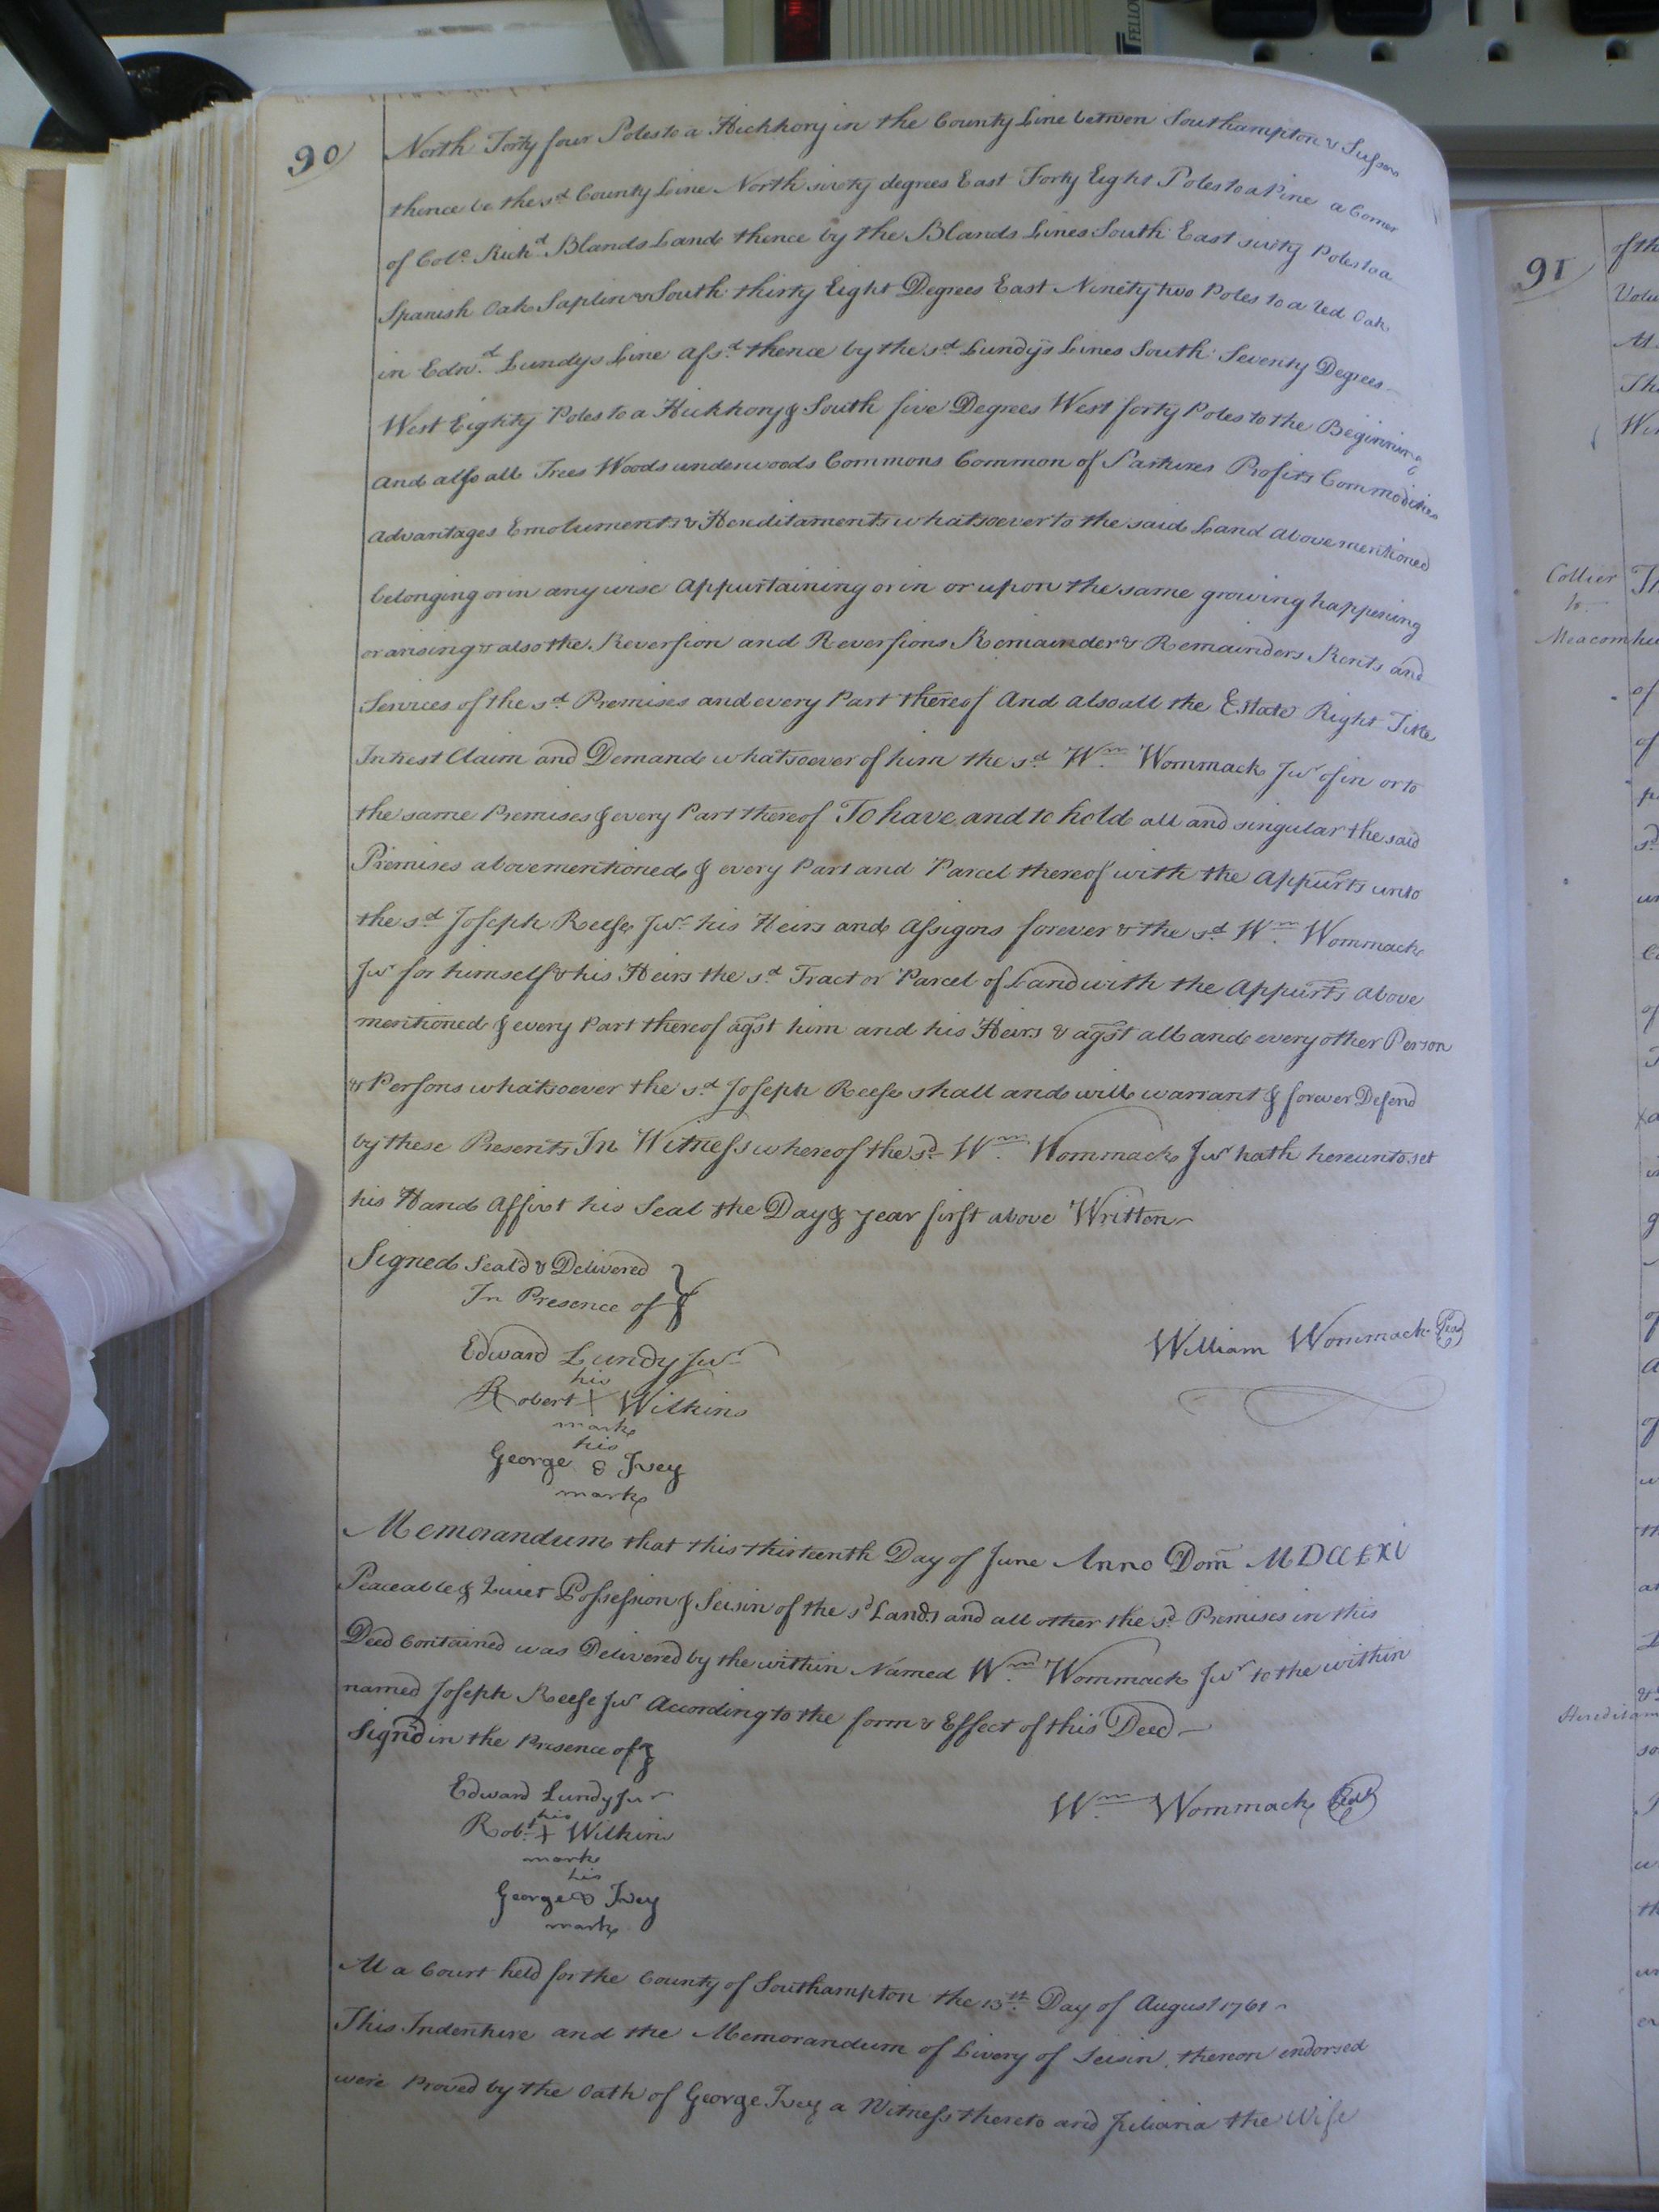 FELLO
90
North Forty four Poles to a Hickhory in the County Line between Southampton & Sussex
thence by the sd. County Line North sixty degrees East Forty Eight Poles to a Pine a Corner
of Colo. Richd. Blands Land thence by the Blands Lines South East sixty Poles to a
Spanish Oak Saplin & South thirty Eight Degrees East Ninety two Poles to a Red Oak
in Edwd. Lundys Line afsd. thence by the sd. Lundys Lines South Seventy Degrees
West Eighty Poles to a Hickhory & South five Degrees West forty Poles to the Beginning
And also all Trees Woods underwoods Commons Common of Pastures Profits Commodities
advantages Emoluments & Hereditaments whatsoever to the said Land above mentioned
belonging or in any wise Appurtaining or in or upon the same growing happening
or arising & also the Reversion and Reversions Remainder & Remainders Rents and
Services of the sd. Premises and every Part thereof And also all the Estate Right Title
Intrest Claim and Demand whatsoever of him the sd. Wm. Wommack Junr of in or to
the same Premises & every Part thereof To have and to hold all and singular the said
Premises abovementioned & every Part and Parcel thereof with the Appurts unto
the sd. Joseph Reese Junr. his Heirs and Assigns forever & the sd. Wm. Wommack
Junr for himself & his Heirs the sd. Tract or Parcel of Land with the Appurts above
mentioned & every Part thereof agst him and his Heirs & agst all and every other Person
or Persons whatsoever the sd. Joseph Reese shall and will warrant & forever Defend
by these Presents In Witness whereof the sd. Wm. Wommack Junr hath hereunto set
his Hand Affixt his Seal the Day & year first above Written
Signed Seald & Delivered
In Presence of
Edward Lundy Junr.
William Wommack Seal
his
Robert X Wilkins
mark
his
George 8 Ivey
mark
Memorandum that this thirteenth Day of June Anno Dom MDCCLXI
Peaceable & Quiet Possession & Seisin of the sd Lands and all other the sd. Premises in this
Deed Contained was Delivered by the within Named Wm. Wommack Junr to the within
named Joseph Reese Junr According to the form & Effect of this Deed
Signd in the Presence of
Edward Lundy Junr
Wm. Wommack Seal
his
Robt. X Wilkins
mark
his
George 8 Ivey
mark
At a Court held for the County of Southampton the 13th. Day of August 1761
This Indenture and the Memorandum of Livery of Seisin thereon endorsed
were Proved by the Oath of George Ivey a Witness thereto and the Wife
91
of th
At
Collier
to
Meacom
of
of